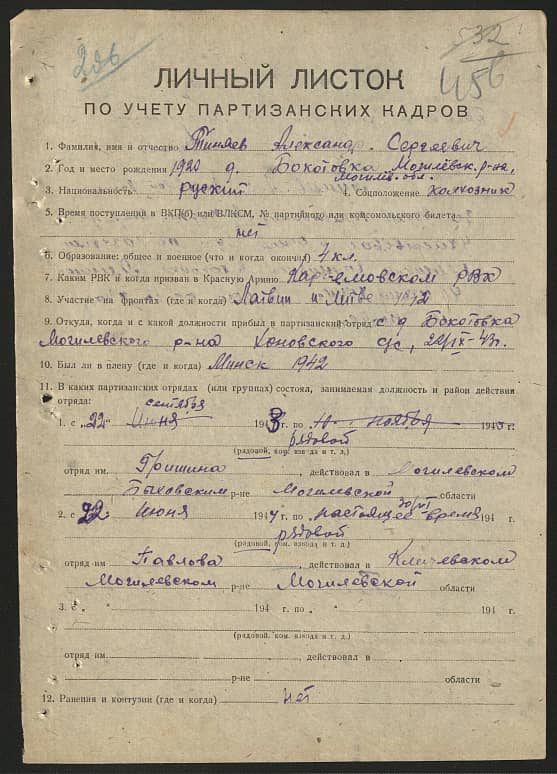 206
532
456
ЛИЧНЫЙ ЛИСТОК
ПО УЧЕТУ ПАРТИЗАНСКИХ КАДРОВ
1. Фамилия, имя и отчество Тиняев Александр Сергеевич
2. Год и место рождения 1920 д. Бокотовка Могилевск. р-на,
Могилев. обл.
3. Национальность руский 4. Соцположение колхозник
5. Время поступления в ВКП(б) или ВЛКСМ, № партийного или комсомольского билета
нет
6. Образование: общее и военное (что и когда окончил) 7 кл.
7. Каким РВК и когда призван в Красную Армию РВК
8. Участие на фронтах (где и когда) Латвии и Литве
9. Откуда, когда и с какой должности прибыл в партизанский отряд с д Бокотовка
Могилевского р-на Хоновского с/с, 22/IX-43г.
10. Был ли в плену (где и когда) Минск 1942
11. В каких партизанских отрядах (или группах) состоял, занимаемая должность и район действия
отряда:
сентября
1. с „22" Июня 1943 г. по 10 ноября 1943 г.
рядовой
(рядовой, ком. взвода и т. д.)
отряд им. Гришина, действовал в Могилевском
Быховским р-не Могилевской области
2. с 22 июня 1944 г. по настоящее время 194 г.
рядовой
(рядовой, ком. взвода и т. д.)
отряд им. Павлова, действовал в Кличевском
Могилевском р-не Могилевской области
3. с „ " 194 г. по " 194 г.
(рядовой, ком. взвода и т. д.)
отряд им. действовал в
р-не области
12. Ранения и контузии (где и когда) нет